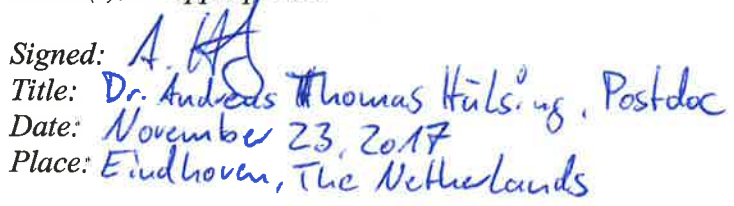 Signed: A.
Title: Dr. Andreas Thomas Hülsing, Postdoc
Date: November 23, 2017
Place: Eindhoven, The Netherlands